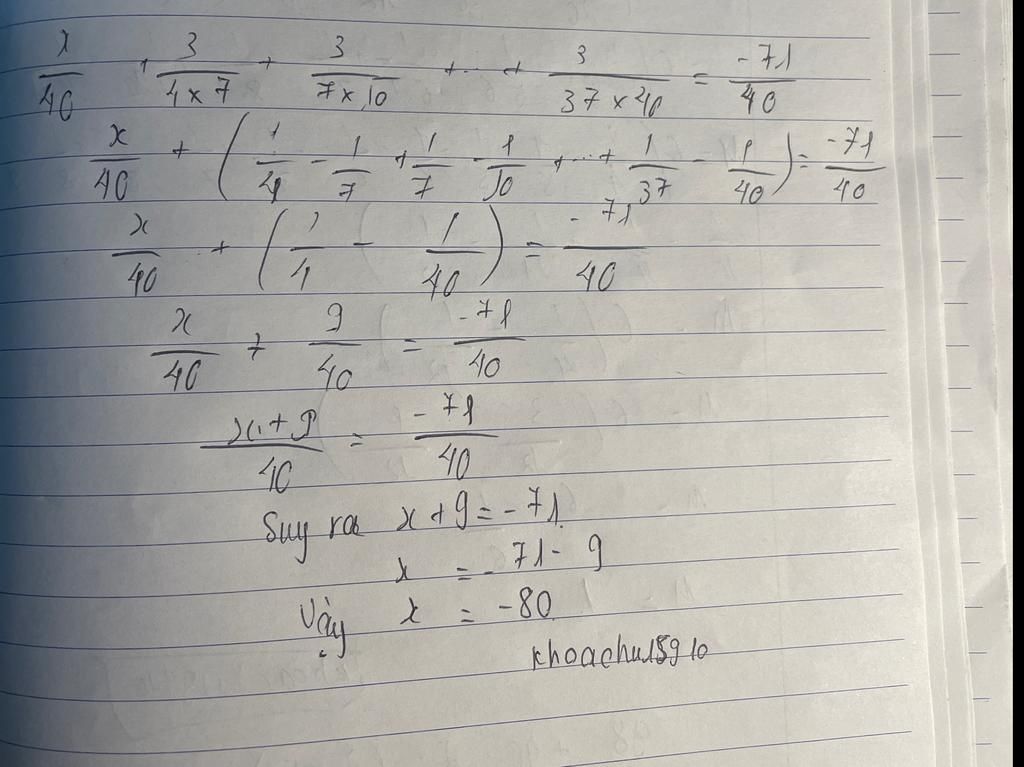 x/40 + 3/(4 x 7) + 3/(7 x 10) + ... + 3/(37 x 40) = -71/40
x/40 + (1/4 - 1/7 + 1/7 - 1/10 + ... + 1/37 - 1/40) = -71/40
x/40 + (1/4 - 1/40) = -71/40
x/40 + 9/40 = -71/40
(x + 9)/40 = -71/40
Suy ra x + 9 = -71
x = -71 - 9
Vậy x = -80
khoachu15910